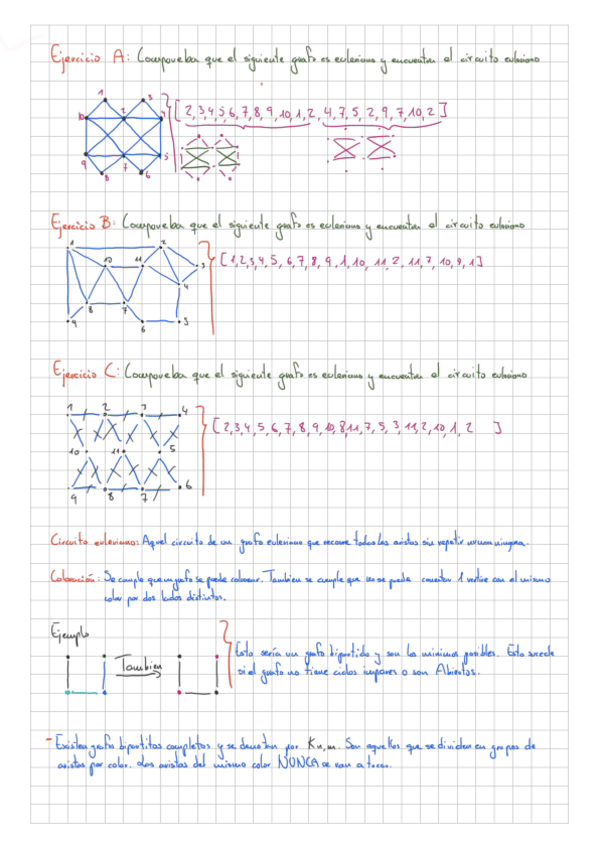 Ejercicio A: Comprueba que el siguiente grafo es euleriano y encuentra el circuito euleriano
1 3
10 2 4
[2,3,4,5,6,7,8,9,10,1,2,4,7,5,2,9,7,10,2]
9 7 5
8 6
Ejercicio B: Comprueba que el siguiente grafo es euleriano y encuentra el circuito euleriano
1 2
10 11 3
[1,2,3,4,5,6,7,8,9,1,10,11,2,11,7,10,8,1]
4
8 7
9 6 5
Ejercicio C: Comprueba que el siguiente grafo es euleriano y encuentra el circuito euleriano
1 2 3 4
[2,3,4,5,6,7,8,9,10,8,11,7,5,3,11,2,10,1,2 ]
10 11 5
9 8 7 6
Circuito euleriano: Aquel circuito de un grafo euleriano que recorre todas las aristas sin repetir ninguna.
Coloración: Se cumple que un grafo se puede colorear. Tambien se cumple que no se puede conectar 1 vertice con el mismo
color por dos lados distintos.
Ejemplo
Tambien
Esto sería un grafo bipartido y son la minimas posibles. Esto sucede
si el grafo no tiene ciclos impares o son Abiertos.
- Existen grafos bipartitos completos y se denotan por Kn,m. Son aquellos que se dividen en grupos de
aristas por color. Las aristas del mismo color NUNCA se van a tocar.